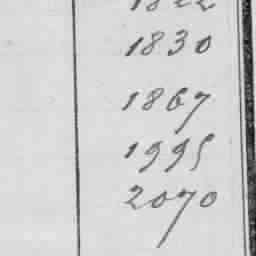 1822
1830
1867
1995
2070